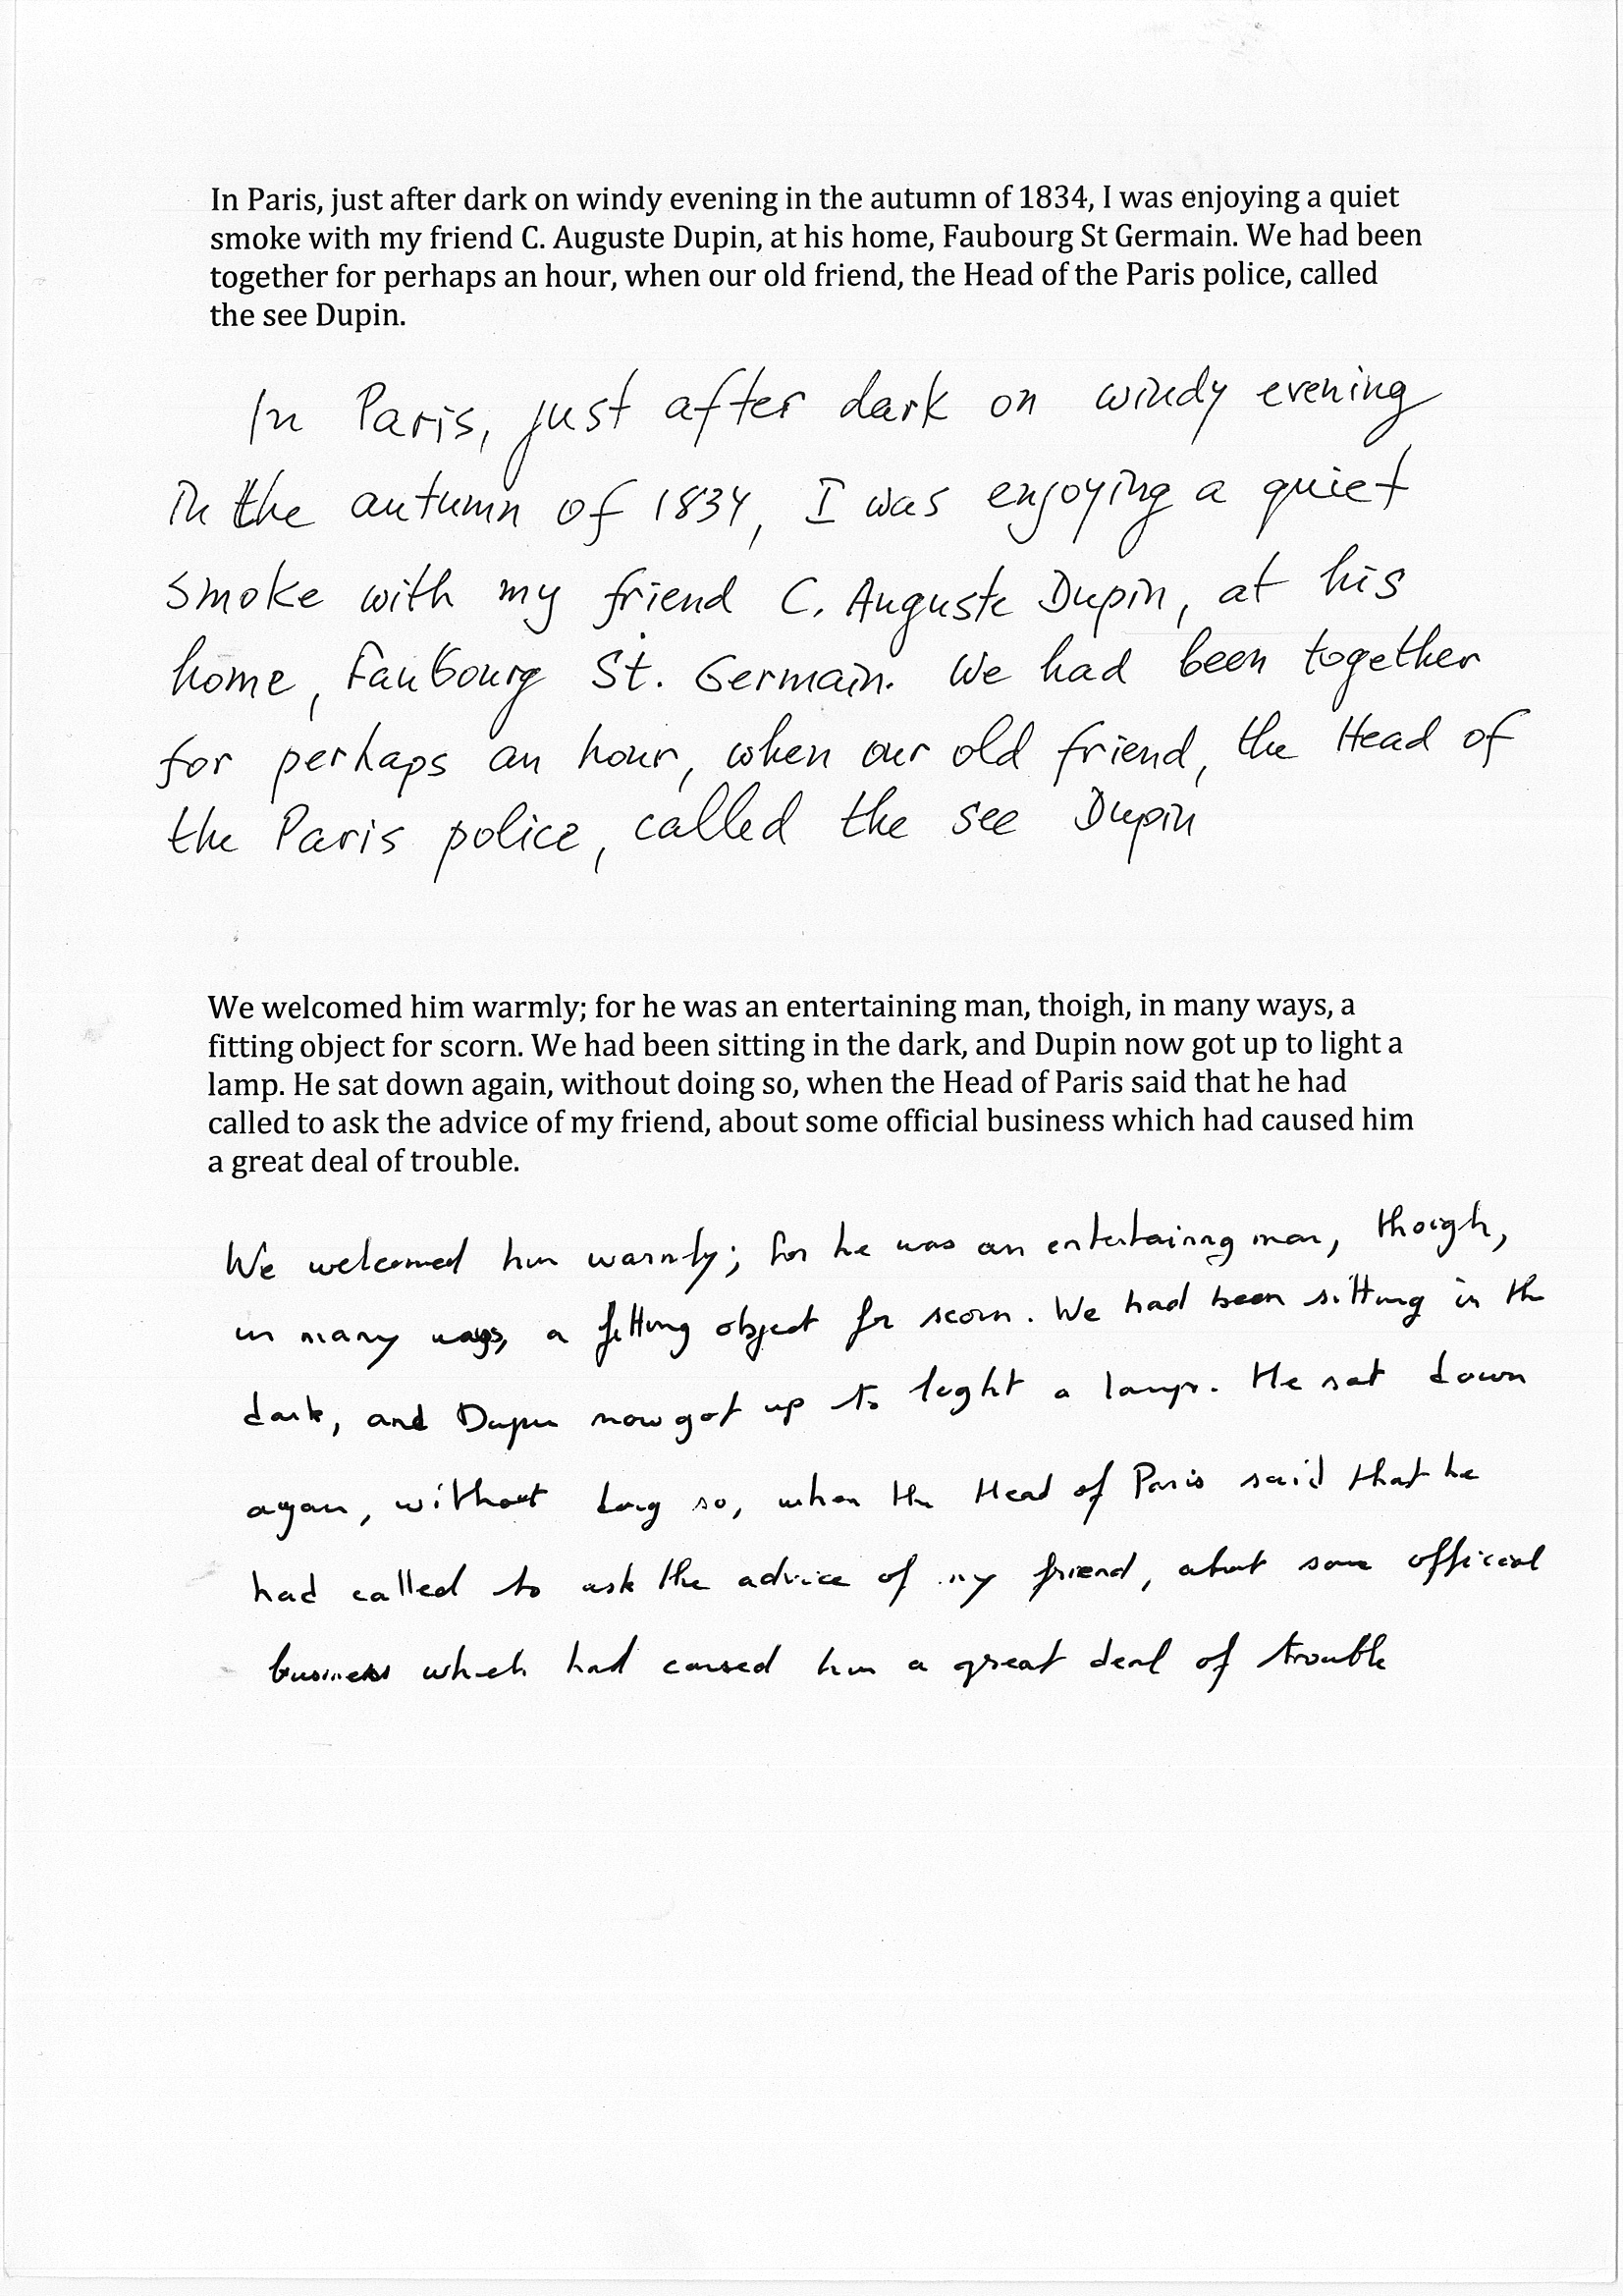 In Paris, just after dark on windy evening in the autumn of 1834, I was enjoying a quiet
smoke with my friend C. Auguste Dupin, at his home, Faubourg St Germain. We had been
together for perhaps an hour, when our old friend, the Head of the Paris police, called
the see Dupin.
In Paris, just after dark on windy evening
in the autumn of 1834, I was enjoying a quiet
smoke with my friend C. Auguste Dupin, at his
home, Faubourg St. Germain. We had been together
for perhaps an hour, when our old friend, the Head of
the Paris police, called the see Dupin
We welcomed him warmly; for he was an entertaining man, thoigh, in many ways, a
fitting object for scorn. We had been sitting in the dark, and Dupin now got up to light a
lamp. He sat down again, without doing so, when the Head of Paris said that he had
called to ask the advice of my friend, about some official business which had caused him
a great deal of trouble.
We welcomed him warmly; for he was an entertaining man, thoigh,
in many ways, a fitting object for scorn. We had been sitting in the
dark, and Dupin now got up to light a lamp. He sat down
again, without doing so, when the Head of Paris said that he
had called to ask the advice of my friend, about some official
business which had caused him a great deal of trouble